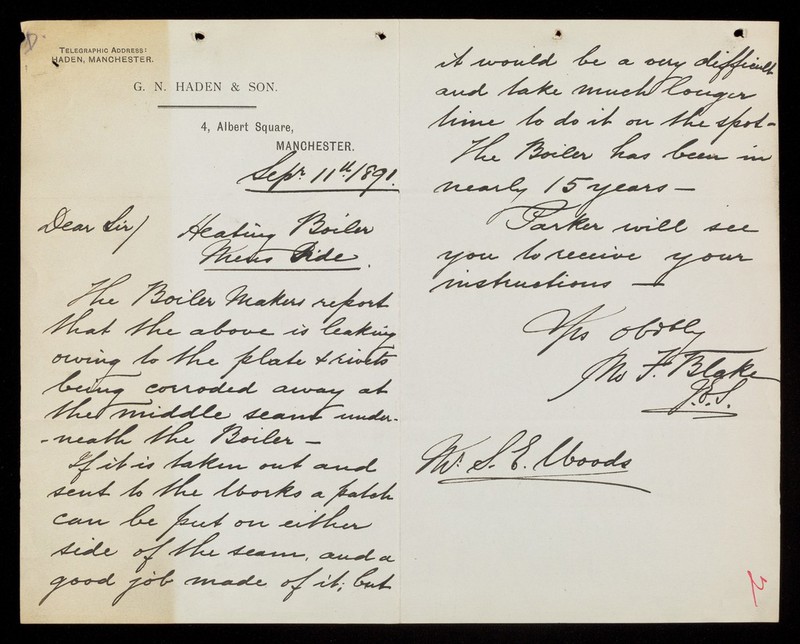 D.
TELEGRAPHIC ADDRESS:
HADEN, MANCHESTER.
G. N. HADEN & SON.
4, Albert Square,
MANCHESTER.
Sepr. 11th/1891.
Dear Sir/ Heating Boiler
Mens Side.
The Boiler Makers report
that the above is leaking
owing to the plate & rivets
being corroded away at
the middle seam under-
-neath the Boiler —
If it is taken out and
sent to the Works a patch
can be put on either
side of the seam, and a
good job made of it; but
it would be a very difficult
and take much longer
time to do it on the spot -
The Boiler has been in
nearly 15 years —
Parker will see
you to receive your
instructions —
Yrs obdtly
F. Blake
J.E.S.
Mr. S. E. Woods